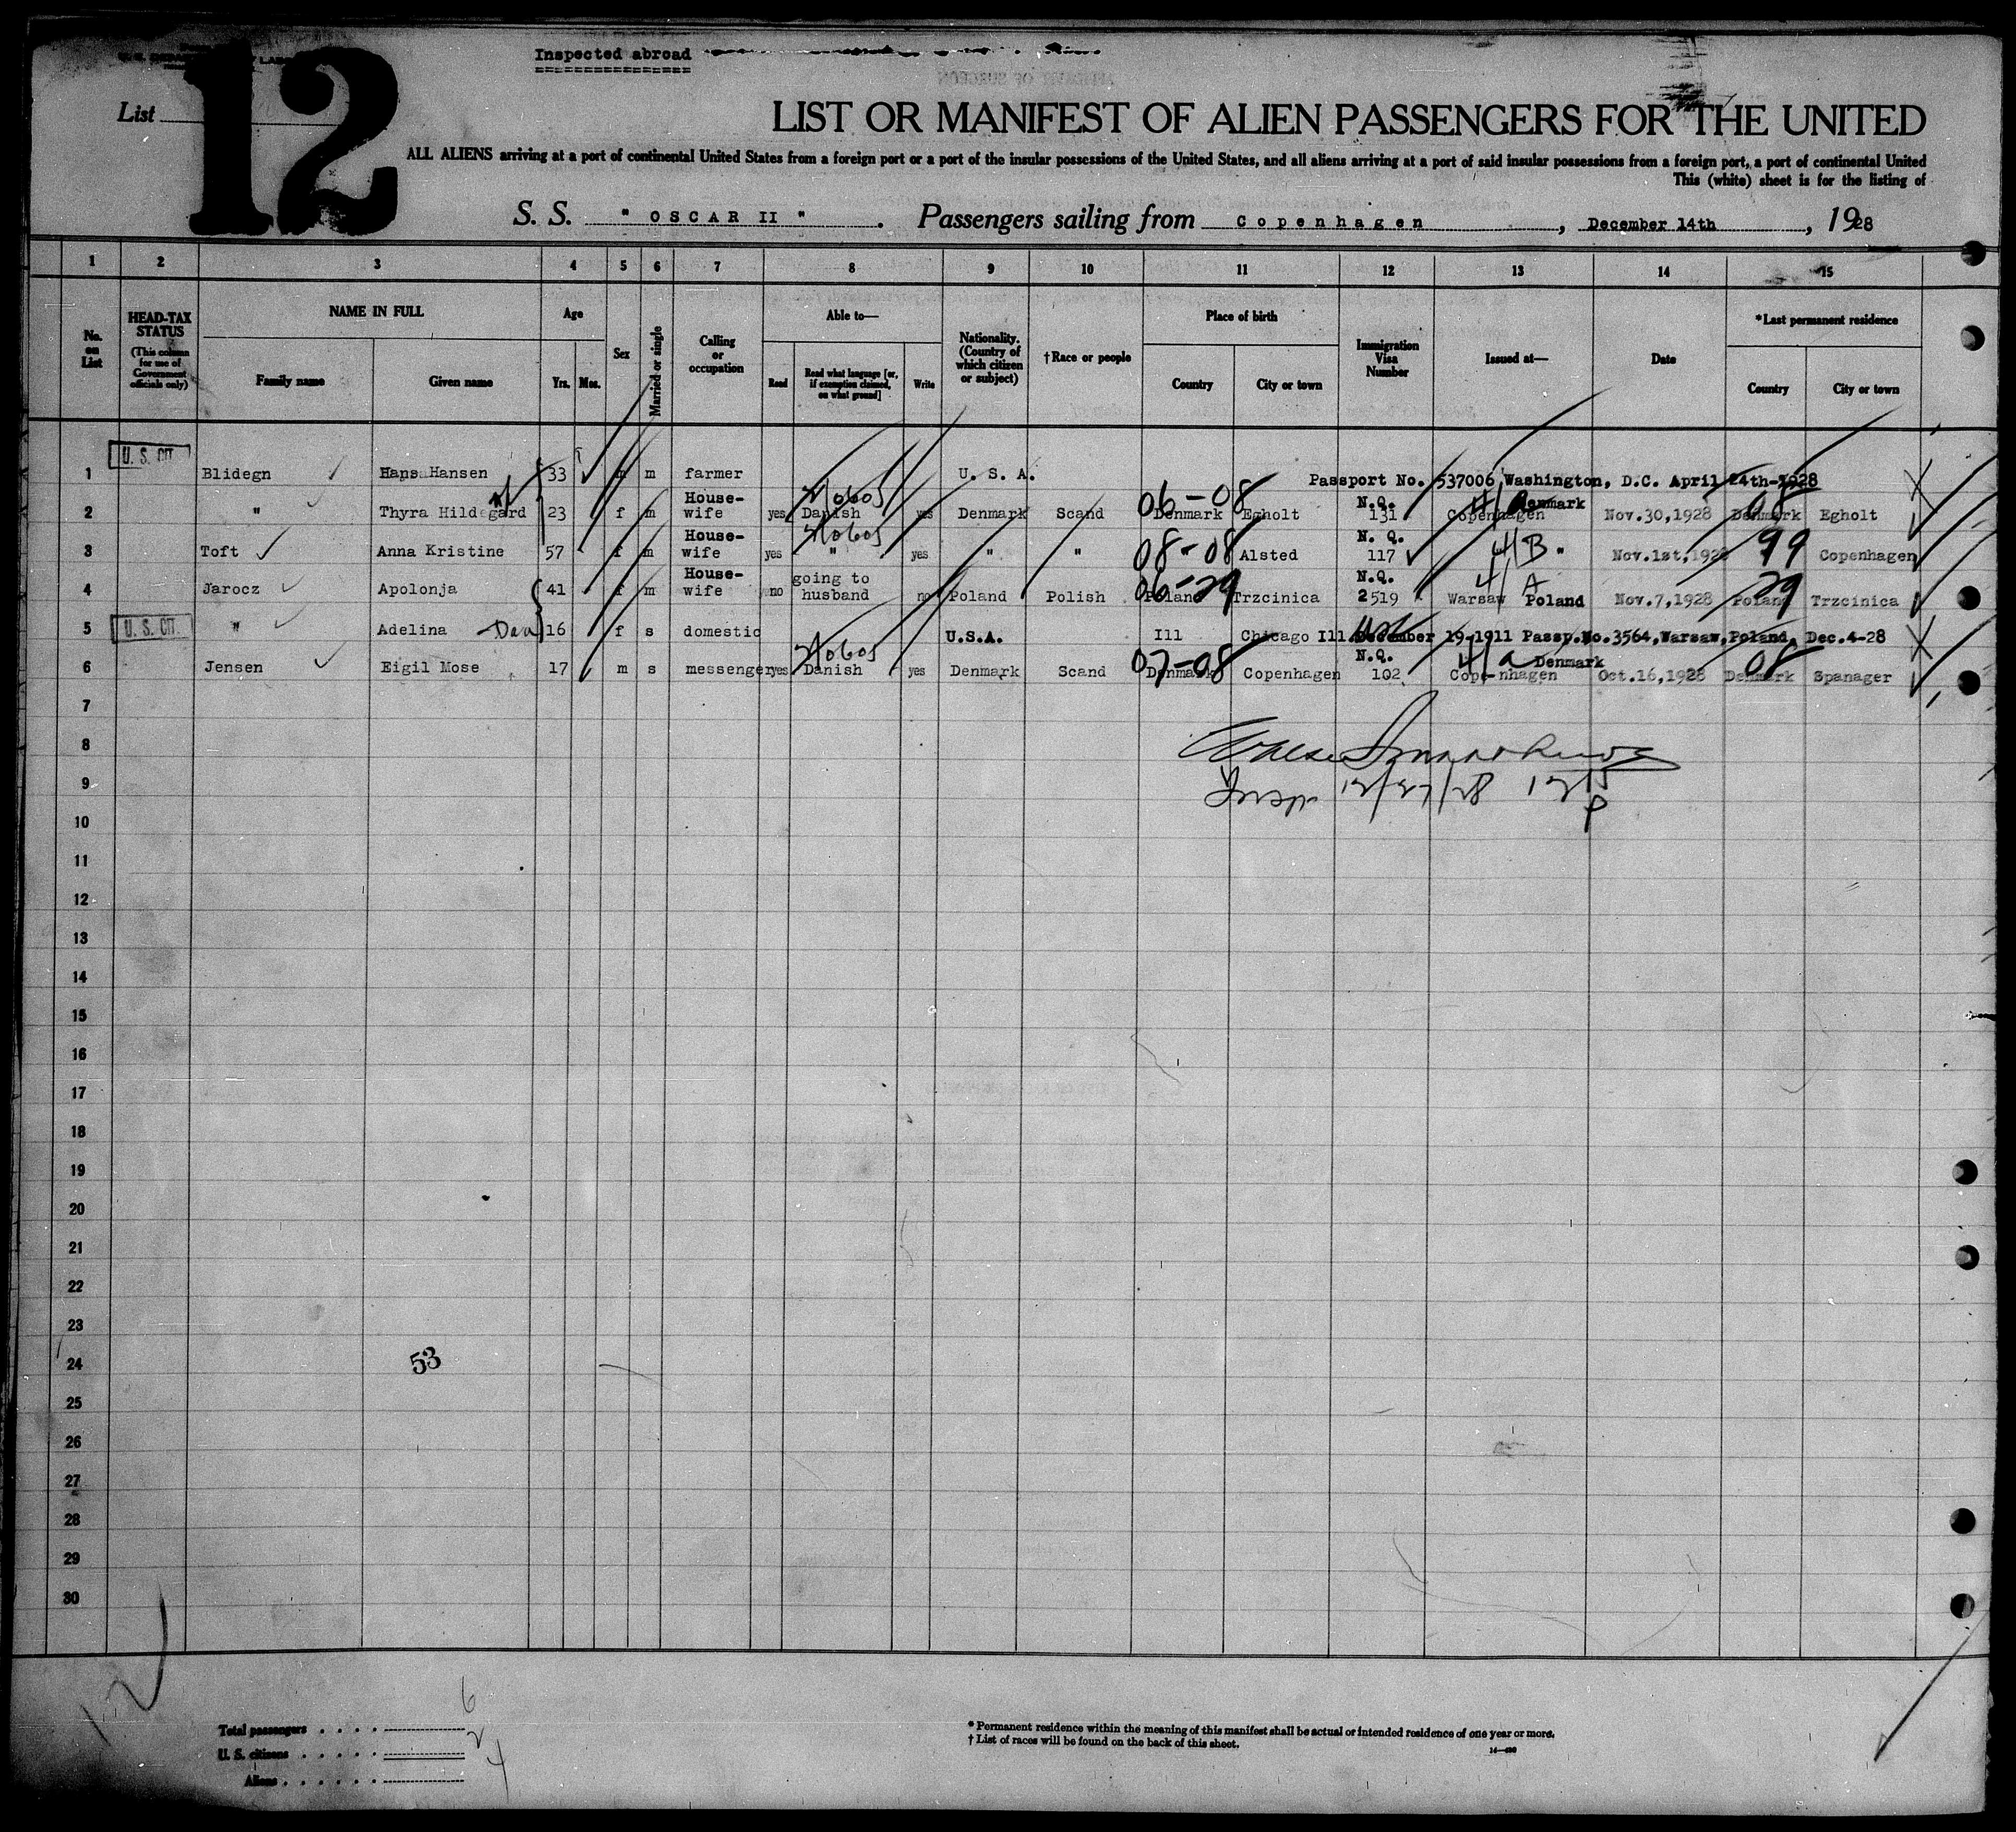 Inspected abroad
List 12
LIST OR MANIFEST OF ALIEN PASSENGERS FOR THE UNITED
ALL ALIENS arriving at a port of continental United States from a foreign port or a port of the insular possessions of the United States, and all aliens arriving at a port of said insular possessions from a foreign port, a port of continental United
This (white) sheet is for the listing of
S. S. " OSCAR II ". Passengers sailing from Copenhagen, December 14th, 1928
1 2 3 4 5 6 7 8 9 10 11 12 13 14 15
No. on List
HEAD-TAX STATUS (This column for use of Government officials only)
NAME IN FULL
Family name Given name
Age
Yrs. Mos.
Sex
Married or single
Calling or occupation
Able to—
Read Read what language [or, if exemption claimed, on what ground] Write
Nationality. (Country of which citizen or subject)
†Race or people
Place of birth
Country City or town
Immigration Visa Number
Issued at—
Date
*Last permanent residence
Country City or town
1 U. S. CIT. Blidegn Hans Hansen 33 m m farmer U. S. A. Passport No. 537006 Washington, D.C. April 24th-1928
2 " Thyra Hildegard 23 f m House-wife yes Danish yes Denmark Scand 06-08 Denmark Egholt N.Q. 131 Copenhagen Denmark Nov.30,1928 Denmark 08 Egholt
3 Toft Anna Kristine 57 f m House-wife yes " yes " " 08-08 Alsted N. Q. 117 4/B " Nov.1st,1928 99 Copenhagen
4 Jarocz Apolonja 41 f m House-wife no going to husband no Poland Polish 06-29 Poland Trzcinica N.Q. 2519 4/A Warsaw Poland Nov.7,1928 Poland 29 Trzcinica
5 U. S. CIT. " Adelina Dau 16 f s domestic U.S.A. Ill Chicago Ill. December 19-1911 Passp.No.3564,Warsaw,Poland, Dec.4-28
6 Jensen Eigil Mose 17 m s messenger yes Danish yes Denmark Scand 07-08 Denmark Copenhagen N.Q. 102 4/a Copenhagen Denmark Oct.16,1928 Denmark 08 Spanager
7
8
9 12/27/28
10
11
12
13
14
15
16
17
18
19
20
21
22
23
24 53
25
26
27
28
29
30
12
Total passengers . . . . 6
U. S. citizens . . . . . 2
Aliens . . . . . . 4
* Permanent residence within the meaning of this manifest shall be actual or intended residence of one year or more.
† List of races will be found on the back of this sheet.